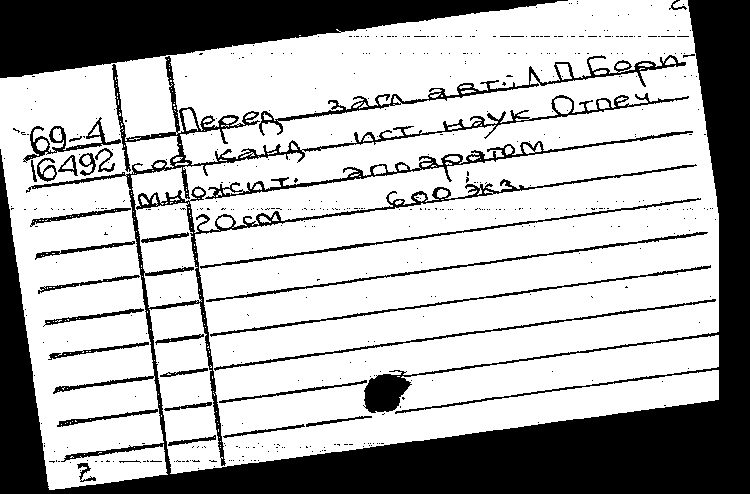 Перед загл. авт.: Л.П.Бори-
69-4
16492
сов, канд. ист. наук Отпеч.
множит. аппаратом
20 см 600 экз.
2